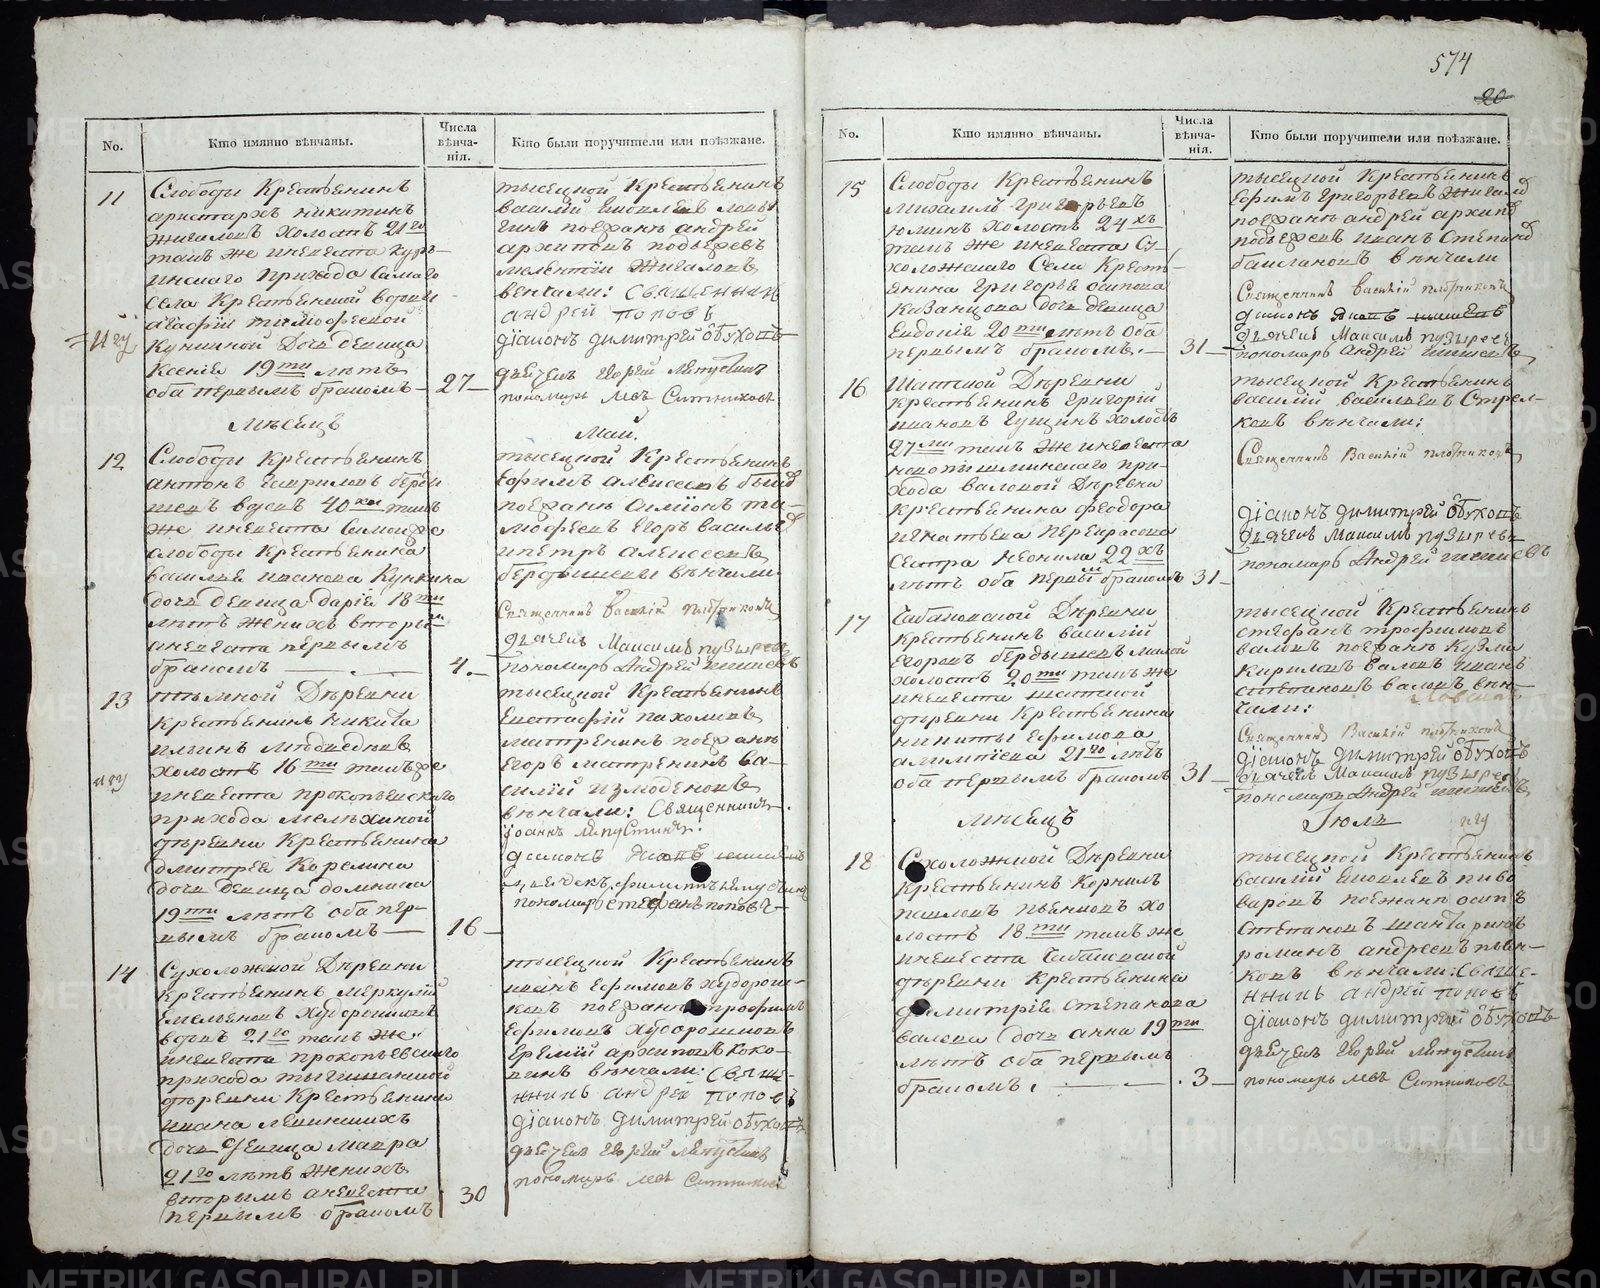 574
20
No.
Кто имянно вѣнчаны.
Числа вѣнча-нія.
Кто были поручители или поѣзжане.
11
Слободы Крестьянинъ
аристархъ никитинъ
Жигаловъ холостъ 21го
тамъ же невѣста
прихода
села Крестьянской вдовы
агафіи тимофеевой
дочь девица
Ксенія 19ти лѣтъ
оба первымъ бракомъ
27
тысецкой Крестьянинъ
василій
поезжанѣ андрей
архиповъ
мелентій Жигаловъ
венчали: Священникъ
андрей поповъ
діаконъ димитрей обуховъ
дьячекъ Георгій Ляпустинъ
пономарь левъ Ситниковъ
Мѣсецъ
Маи.
12
Слободы Крестьянинъ
антонъ гавриловъ берды
шевъ вдовъ 40 тамъ
же невѣста
слободы Крестьянина
василья иванова Кункина
дочь девица дарія 18ти
лѣтъ женихъ вторы
аневѣста первымъ
бракомъ
4.
тысецкой Крестьянинъ
ефимъ алексеевъ
поезжанѣ ти-
мофеевъ Егоръ
ипетръ алексеевъ
бердышевы вѣнчали.
Священникъ Василій плотниковъ
дьячекъ Максимъ пузыревъ
пономарь Андрей
13
Деревни
Крестьянинъ никита
ильинъ
холостъ 16ти тамъ же
невѣста прокопьевскаго
прихода
деревни Крестьянина
дмитрея Корелина
дочь девица домника
19ти лѣтъ оба пер-
вымъ бракомъ
16
тысецкой Крестьянинъ
Евстафій пахомовъ
поезжанѣ
Егоръ ва-
силій измоденовъ
вѣнчали: Священникъ
іоаннъ Ляпустинъ.
діаконъ
пономарь стефанъ поповъ
14
Сухоложской Деревни
Крестьянинъ меркулій
Емельяновъ Худорошковъ
вдовъ 21го тамъ же
невѣста прокопьевскаго
прихода
деревни Крестьянина
ивана
дочь девица мавра
21го лѣтъ женихъ
вторымъ аневѣста
первымъ бракомъ
30
тысецкой Крестьянинъ
иванъ Ефимовъ Худорош-
ковъ поезжанѣ трофимъ
Ефимовъ Худорошковъ
Еремій архиповъ Коко-
винъ вѣнчали: Свяще-
ннинъ андрей поповъ
діаконъ димитрей обуховъ
дьячекъ Георгій Ляпустинъ
пономарь левъ Ситниковъ
No.
Кто имянно вѣнчаны.
Числа вѣнча-нія.
Кто были поручители или поѣзжане.
15
Слободы Крестьянинъ
михаилъ григорьевъ
холостъ 24хъ
тамъ же невѣста Су-
холожскаго Села Кресть-
янина григорья осипова
Казанцова дочь девица
Евдокія 20ти лѣтъ оба
первымъ бракомъ.
31
тысецкой Крестьянинъ
Ефимъ григорьевъ Жигалов
поезжанѣ андрей архипов
иванъ Степанов
вѣнчали
Священникъ Василій плотниковъ
діаконъ
дьячекъ Максимъ пузыревъ
пономарь Андрей
16
Шатской Деревни
Крестьянинъ григорій
ивановъ Гущинъ холостъ
27ми тамъ же невѣста
новопышминскаго при-
хода валовой Деревни
Крестьянина феодора
игнатьева
сестра неонила 22хъ
лѣтъ оба первы бракомъ
31
тысецкой Крестьянинъ
василій васильевъ Стрел-
ковъ вѣнчали:
Священникъ Василій плотниковъ
діаконъ димитрей обуховъ
дьячекъ Максимъ пузыревъ
пономарь Андрей
17
Деревни
Крестьянинъ василій
Егоровъ бердышевъ малой
холостъ 20ти тамъ же
невѣста шатской
деревни Крестьянина
никиты ефимова
21го лѣтъ
оба первымъ бракомъ
31
тысецкой Крестьянинъ
стефанъ трофимовъ
валовъ поезжанѣ Кузма
Кириловъ валовъ иванъ
степановъ валовъ вѣн-
чали:
Священникъ Василій плотниковъ
діаконъ димитрей обуховъ
дьячекъ Максимъ пузыревъ
пономарь Андрей
Мѣсецъ
Іюль
18
Сухоложской Деревни
Крестьянинъ Корнилъ
павловъ пьянковъ хо
лостъ 18ти тамъ же
невѣста
деревни Крестьянина
димитрія степанова
валова дочь анна 19ти
лѣтъ оба первымъ
бракомъ.
3
тысецкой Крестьянинъ
василій яковлевъ пиво
варовъ поезжанѣ осипъ
степановъ
романъ андреевъ пьян-
ковъ вѣнчали: Свяще-
ннинъ андрей поповъ
діаконъ димитрей обуховъ
дьячекъ Георгій Ляпустинъ
пономарь левъ Ситниковъ
METRIKI.GASO-URAL.RU